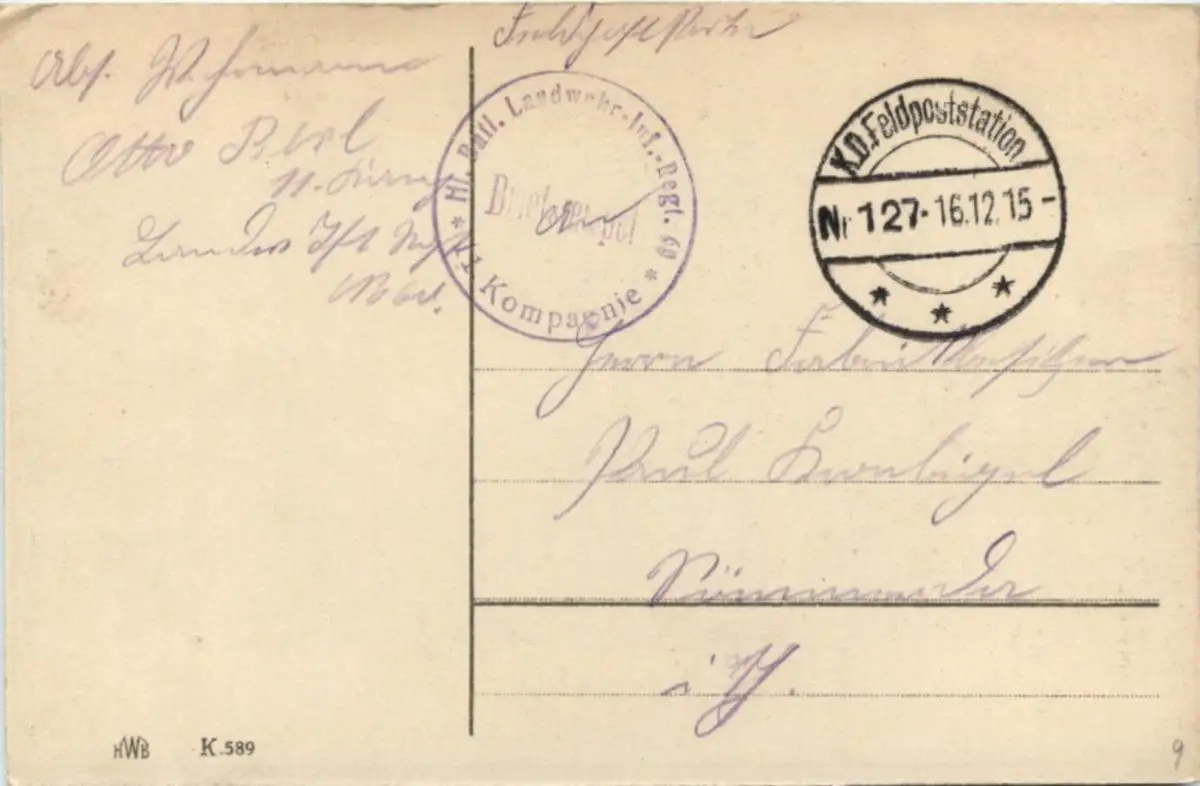 Feldpostkarte
Abs. Wehrmann
Otto
11. Komp
Landw Inft Regt
* III. Batl. Landwehr-Inf.-Regt. 60 *
Briefstempel
11. Kompagnie
K.D. Feldpoststation
Nr 127 · 16.12.15 -
* * *
Herrn Fabrikbesitzer
Paul
Sömmerda
i. Th.
HWB K.589
9